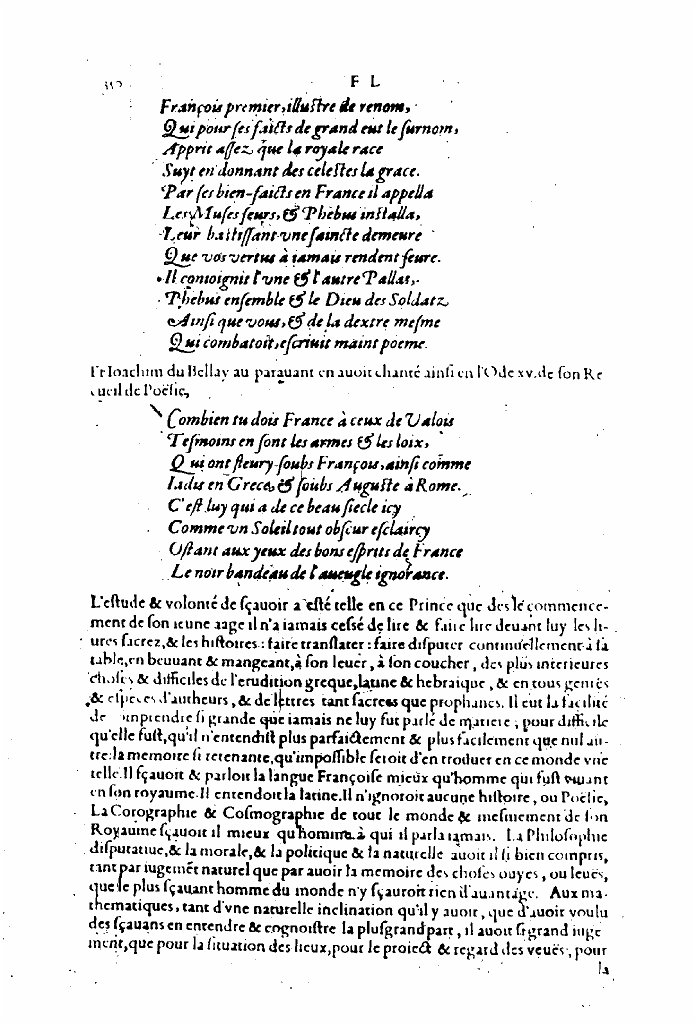 F L
François premier, illustre de renom,
Qui pour ses faicts de grand eut le surnom,
Apprit assez que la royale race
Suyt en donnant des celestes la grace.
Par ses bien-faicts en France il appella
Les Muses seurs, & Phebus installa,
Leur bastissant vne saincte demeure
Que vos vertus à iamais rendent seure.
Il conioignit l'vne & l'autre Pallas,
Phebus ensemble & le Dieu des Soldatz
Ainsi que vous, & de la dextre mesme
Qui combatoit, escriuit maint poeme.
Et Ioachim du Bellay au parauant en auoit chanté ainsi en l'Ode xv. de son Re
cueil de Poësie,
Combien tu dois France à ceux de Valois
Tesmoins en sont les armes & les loix,
Qui ont fleury soubs François, ainsi comme
Iadis en Grece, & soubs Auguste à Rome.
C'est luy qui a de ce beau siecle icy
Comme vn Soleil tout obscur esclaircy
Ostant aux yeux des bons esprits de France
Le noir bandeau de l'aueugle ignorance.
L'estude & volonté de sçauoir a esté telle en ce Prince que des le commence-
ment de son ieune aage il n'a iamais cessé de lire & faire lire deuant luy les li-
ures sacrez, & les histoires: faire translater: faire disputer continuellement à sa
table, en beuuant & mangeant, à son leuer, à son coucher, des plus interieures
choses & difficiles de l'erudition greque, latine & hebraique, & en tous genres
& especes d'autheurs, & de lettres tant sacrees que prophanes. Il eut la facilité
de comprendre si grande que iamais ne luy fut parlé de matiere, pour difficile
qu'elle fust, qu'il n'entendist plus parfaictement & plus facilement que nul au-
tre: la memoire si retenante, qu'impossible seroit d'en trouuer en ce monde vne
telle. Il sçauoit & parloit la langue Françoise mieux qu'homme qui fust viuant
en son royaume. Il entendoit la latine. Il n'ignoroit aucune histoire, ou Poësie,
La Corographie & Cosmographie de tout le monde & mesmement de son
Royaume sçauoit il mieux qu'homme à qui il parla iamais. La Philosophie
disputatiue, & la morale, & la politique & la naturelle auoit il si bien compris,
tant par iugemēt naturel que par auoir la memoire des choses ouyes, ou leuës,
que le plus sçauant homme du monde n'y sçauroit rien d'auantage. Aux ma-
thematiques, tant d'vne naturelle inclination qu'il y auoit, que d'auoir voulu
des sçauans en entendre & cognoistre la plus grand part, il auoit si grand iuge
ment, que pour la situation des lieux, pour le proiect & regard des veuës, pour
la